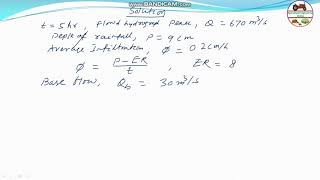 WWW.BANDICAM.COM
Solution
t = 5 hr, Flood hydrograph Peak, Q = 670 m³/s
Depth of rainfall, P = 9 cm
Average Infiltration, Φ = 0.2 cm/h
Φ = P-ER / t , ER = 8
Base flow, Q_b = 30 m³/s